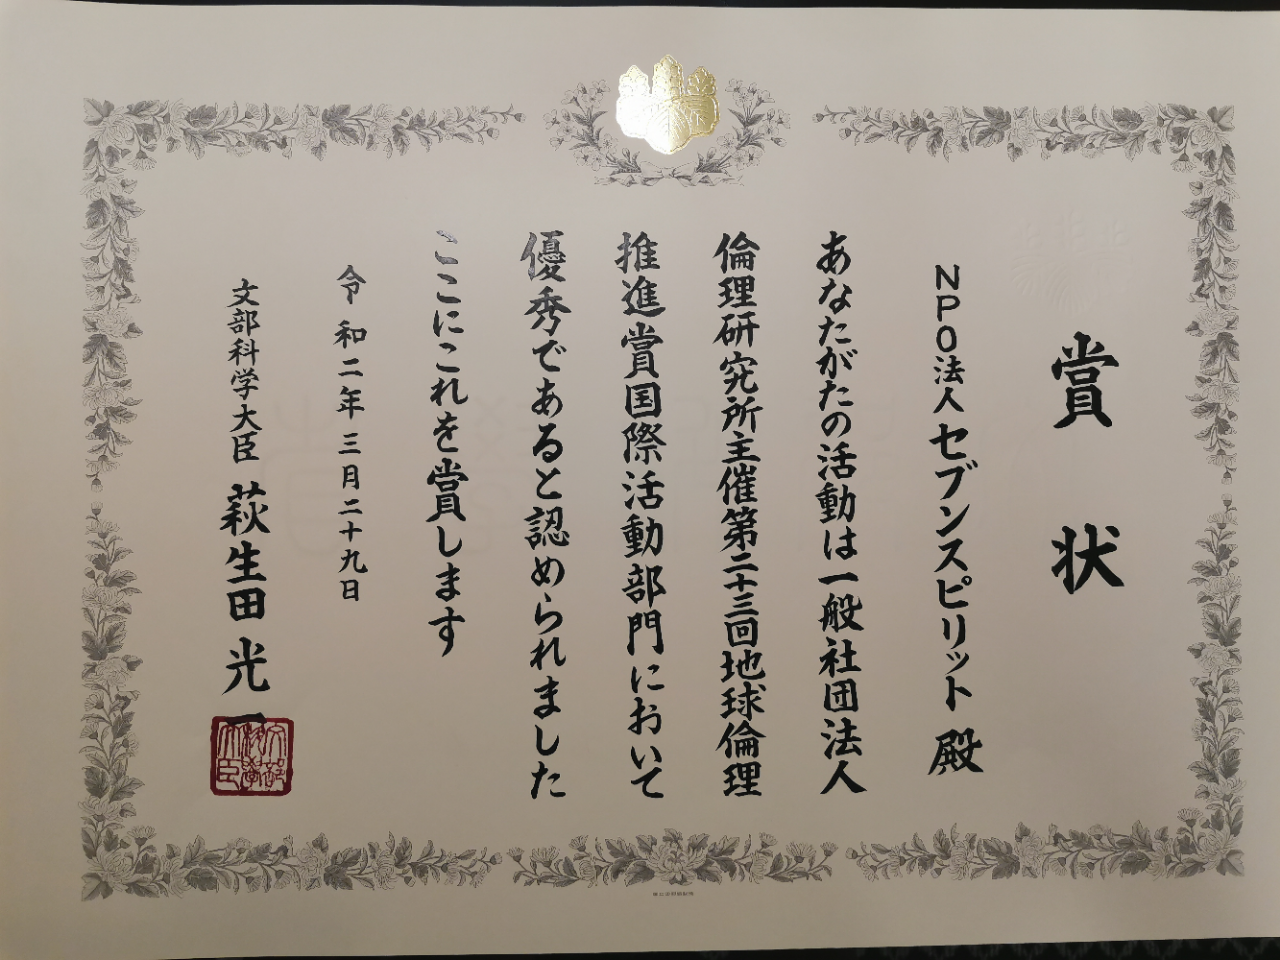 賞状
NPO法人セブンスピリット殿
あなたがたの活動は一般社団法人
倫理研究所主催第二十三回地球倫理
推進賞国際活動部門において
優秀であると認められました
ここにこれを賞します
令和二年三月二十九日
文部科学大臣 萩生田光一